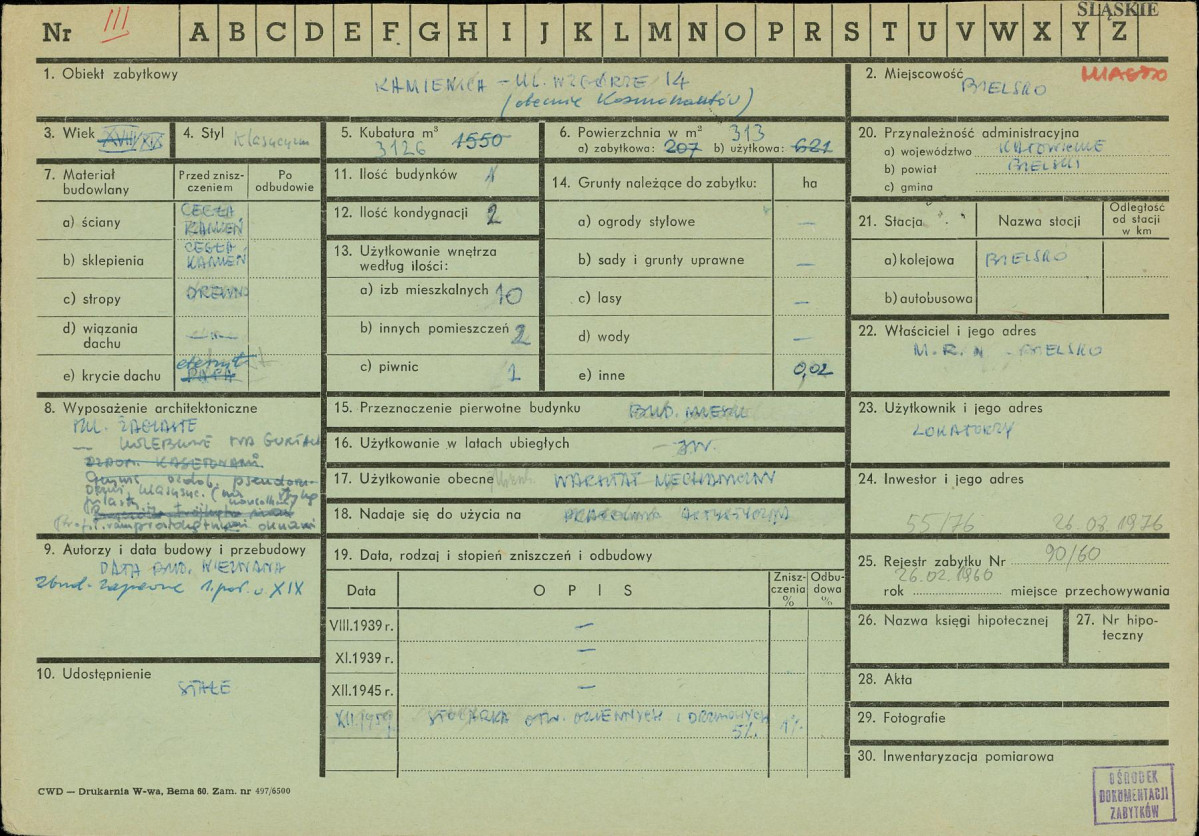 ŚLĄSKIE
Nr III A B C D E F G H I J K L M N O P R S T U V W X Y Z
1. Obiekt zabytkowy
KAMIENICA – UL. WZGÓRZE 14
(obecnie Kosmonautów)
2. Miejscowość MIASTO
BIELSKO
3. Wiek XVIII/XIX
4. Styl klasycyzm
5. Kubatura m³
3126 1550
6. Powierzchnia w m² 313
a) zabytkowa: 207 b) użytkowa: 621
7. Materiał budowlany
Przed zniszczeniem
Po odbudowie
a) ściany CEGŁA KAMIEŃ
b) sklepienia CEGŁA KAMIEŃ
c) stropy DREWNO
d) wiązania dachu
e) krycie dachu eternit PAPA
8. Wyposażenie architektoniczne
KOLEBKOWE NA GURTACH
KASETONAMI
9. Autorzy i data budowy i przebudowy
DATA BUD. NIEZNANA
zbud. zapewne 1. poł. w. XIX
10. Udostępnienie
STAŁE
11. Ilość budynków 1
12. Ilość kondygnacji 2
13. Użytkowanie wnętrza według ilości:
a) izb mieszkalnych 10
b) innych pomieszczeń 2
c) piwnic 1
14. Grunty należące do zabytku: ha
a) ogrody stylowe —
b) sady i grunty uprawne —
c) lasy —
d) wody —
e) inne 0,02
15. Przeznaczenie pierwotne budynku BUD. MIESZK.
16. Użytkowanie w latach ubiegłych — JW.
17. Użytkowanie obecne WARSZTAT MECHANICZNY
18. Nadaje się do użycia na PRACOWNIA ARTYSTYCZNA
19. Data, rodzaj i stopień zniszczeń i odbudowy
Data
O P I S
Zniszczenia %
Odbudowa %
VIII.1939 r. —
XI.1939 r. —
XII.1945 r. —
XII.1959 r. STOLARKA OTW. OKIENNYCH I DRZWIOWYCH 5% 1%
20. Przynależność administracyjna
a) województwo KATOWICKIE
b) powiat BIELSKI
c) gmina
21. Stacja
Nazwa stacji
Odległość od stacji w km
a) kolejowa BIELSKO
b) autobusowa
22. Właściciel i jego adres
M. R. N. BIELSKO
23. Użytkownik i jego adres
LOKATORZY
24. Inwestor i jego adres
55/76 26.02.1976
25. Rejestr zabytku Nr 90/60
26.02.1960
rok miejsce przechowywania
26. Nazwa księgi hipotecznej
27. Nr hipoteczny
28. Akta
29. Fotografie
30. Inwentaryzacja pomiarowa
CWD — Drukarnia W-wa, Bema 60. Zam. nr 497/6500
OŚRODEK
DOKUMENTACJI
ZABYTKÓW